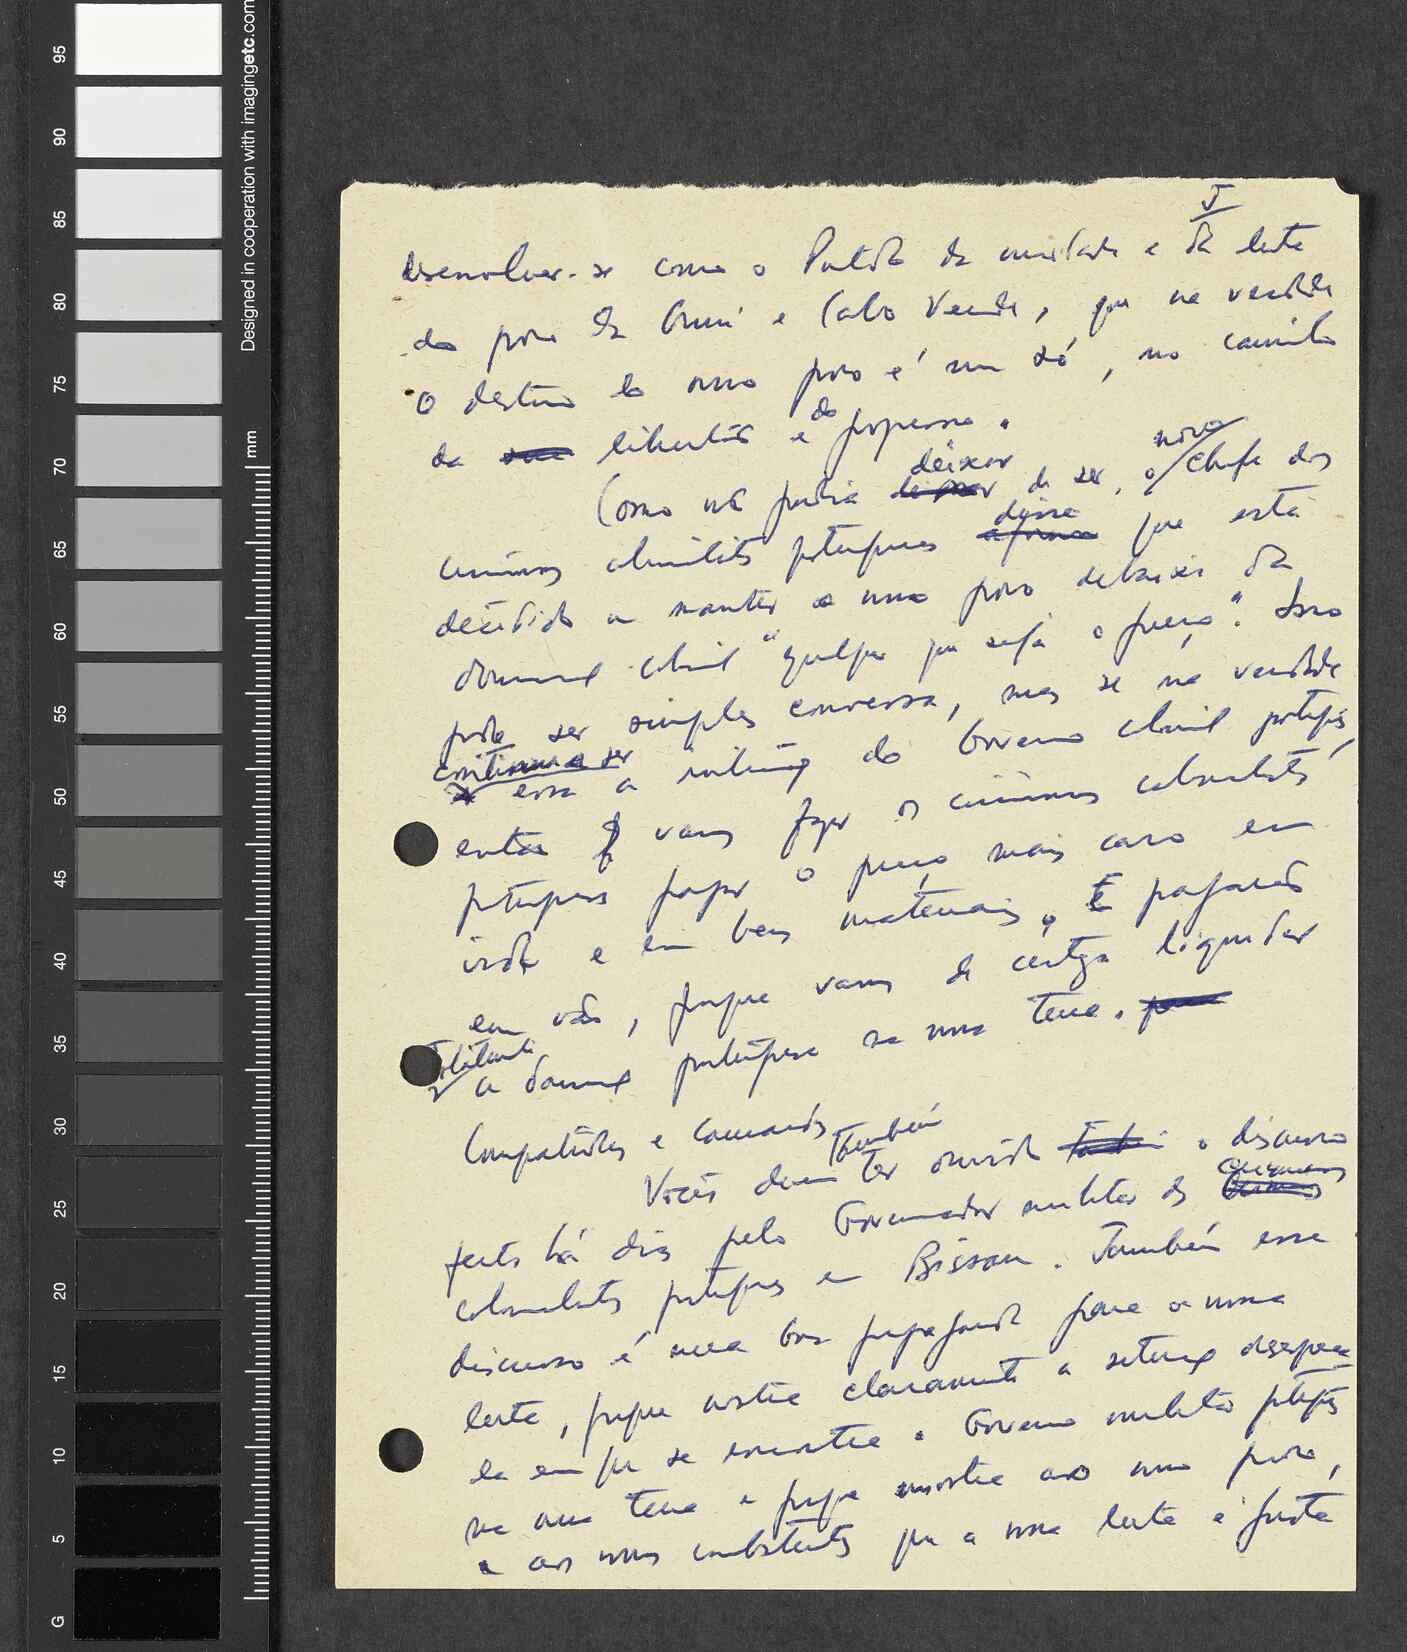 V
desenvolver-se como o Partido da unidade e da luta
do povo da Guiné e Cabo Verde, que na verdade
o destino do nosso povo é um só, no caminho
da libertação e do progresso.
Como não podia deixar de ser, o novo chefe dos
criminosos colonialistas portugueses disse que está
decidido a manter o nosso povo debaixo da
dominação colonial "qualquer que seja o preço". Isso
pode ser simples conversa, mas se na verdade
continua a ser essa a intenção do Governo colonial português,
então vamos fazer os criminosos colonialistas
portugueses pagar o preço mais caro em
vida e em bens materiais. E pagarão
em vão, porque vamos de certeza liquidar
totalmente a dominação portuguesa na nossa terra.
Compatriotas e camaradas
Vocês devem também ter ouvido o discurso
feito há dias pelo Governador militar dos criminosos
colonialistas portugueses em Bissau. Também esse
discurso é uma boa propaganda para a nossa
luta, porque mostra claramente a situação desespera
da em que se encontra o Governo militar português
na nossa terra e porque mostra ao nosso povo,
e aos nossos combatentes que a nossa luta é justa
95
90
85
80
75
70
65
60
55
50
45
40
35
30
25
20
15
10
5
G
mm
Designed in cooperation with imagingetc.com